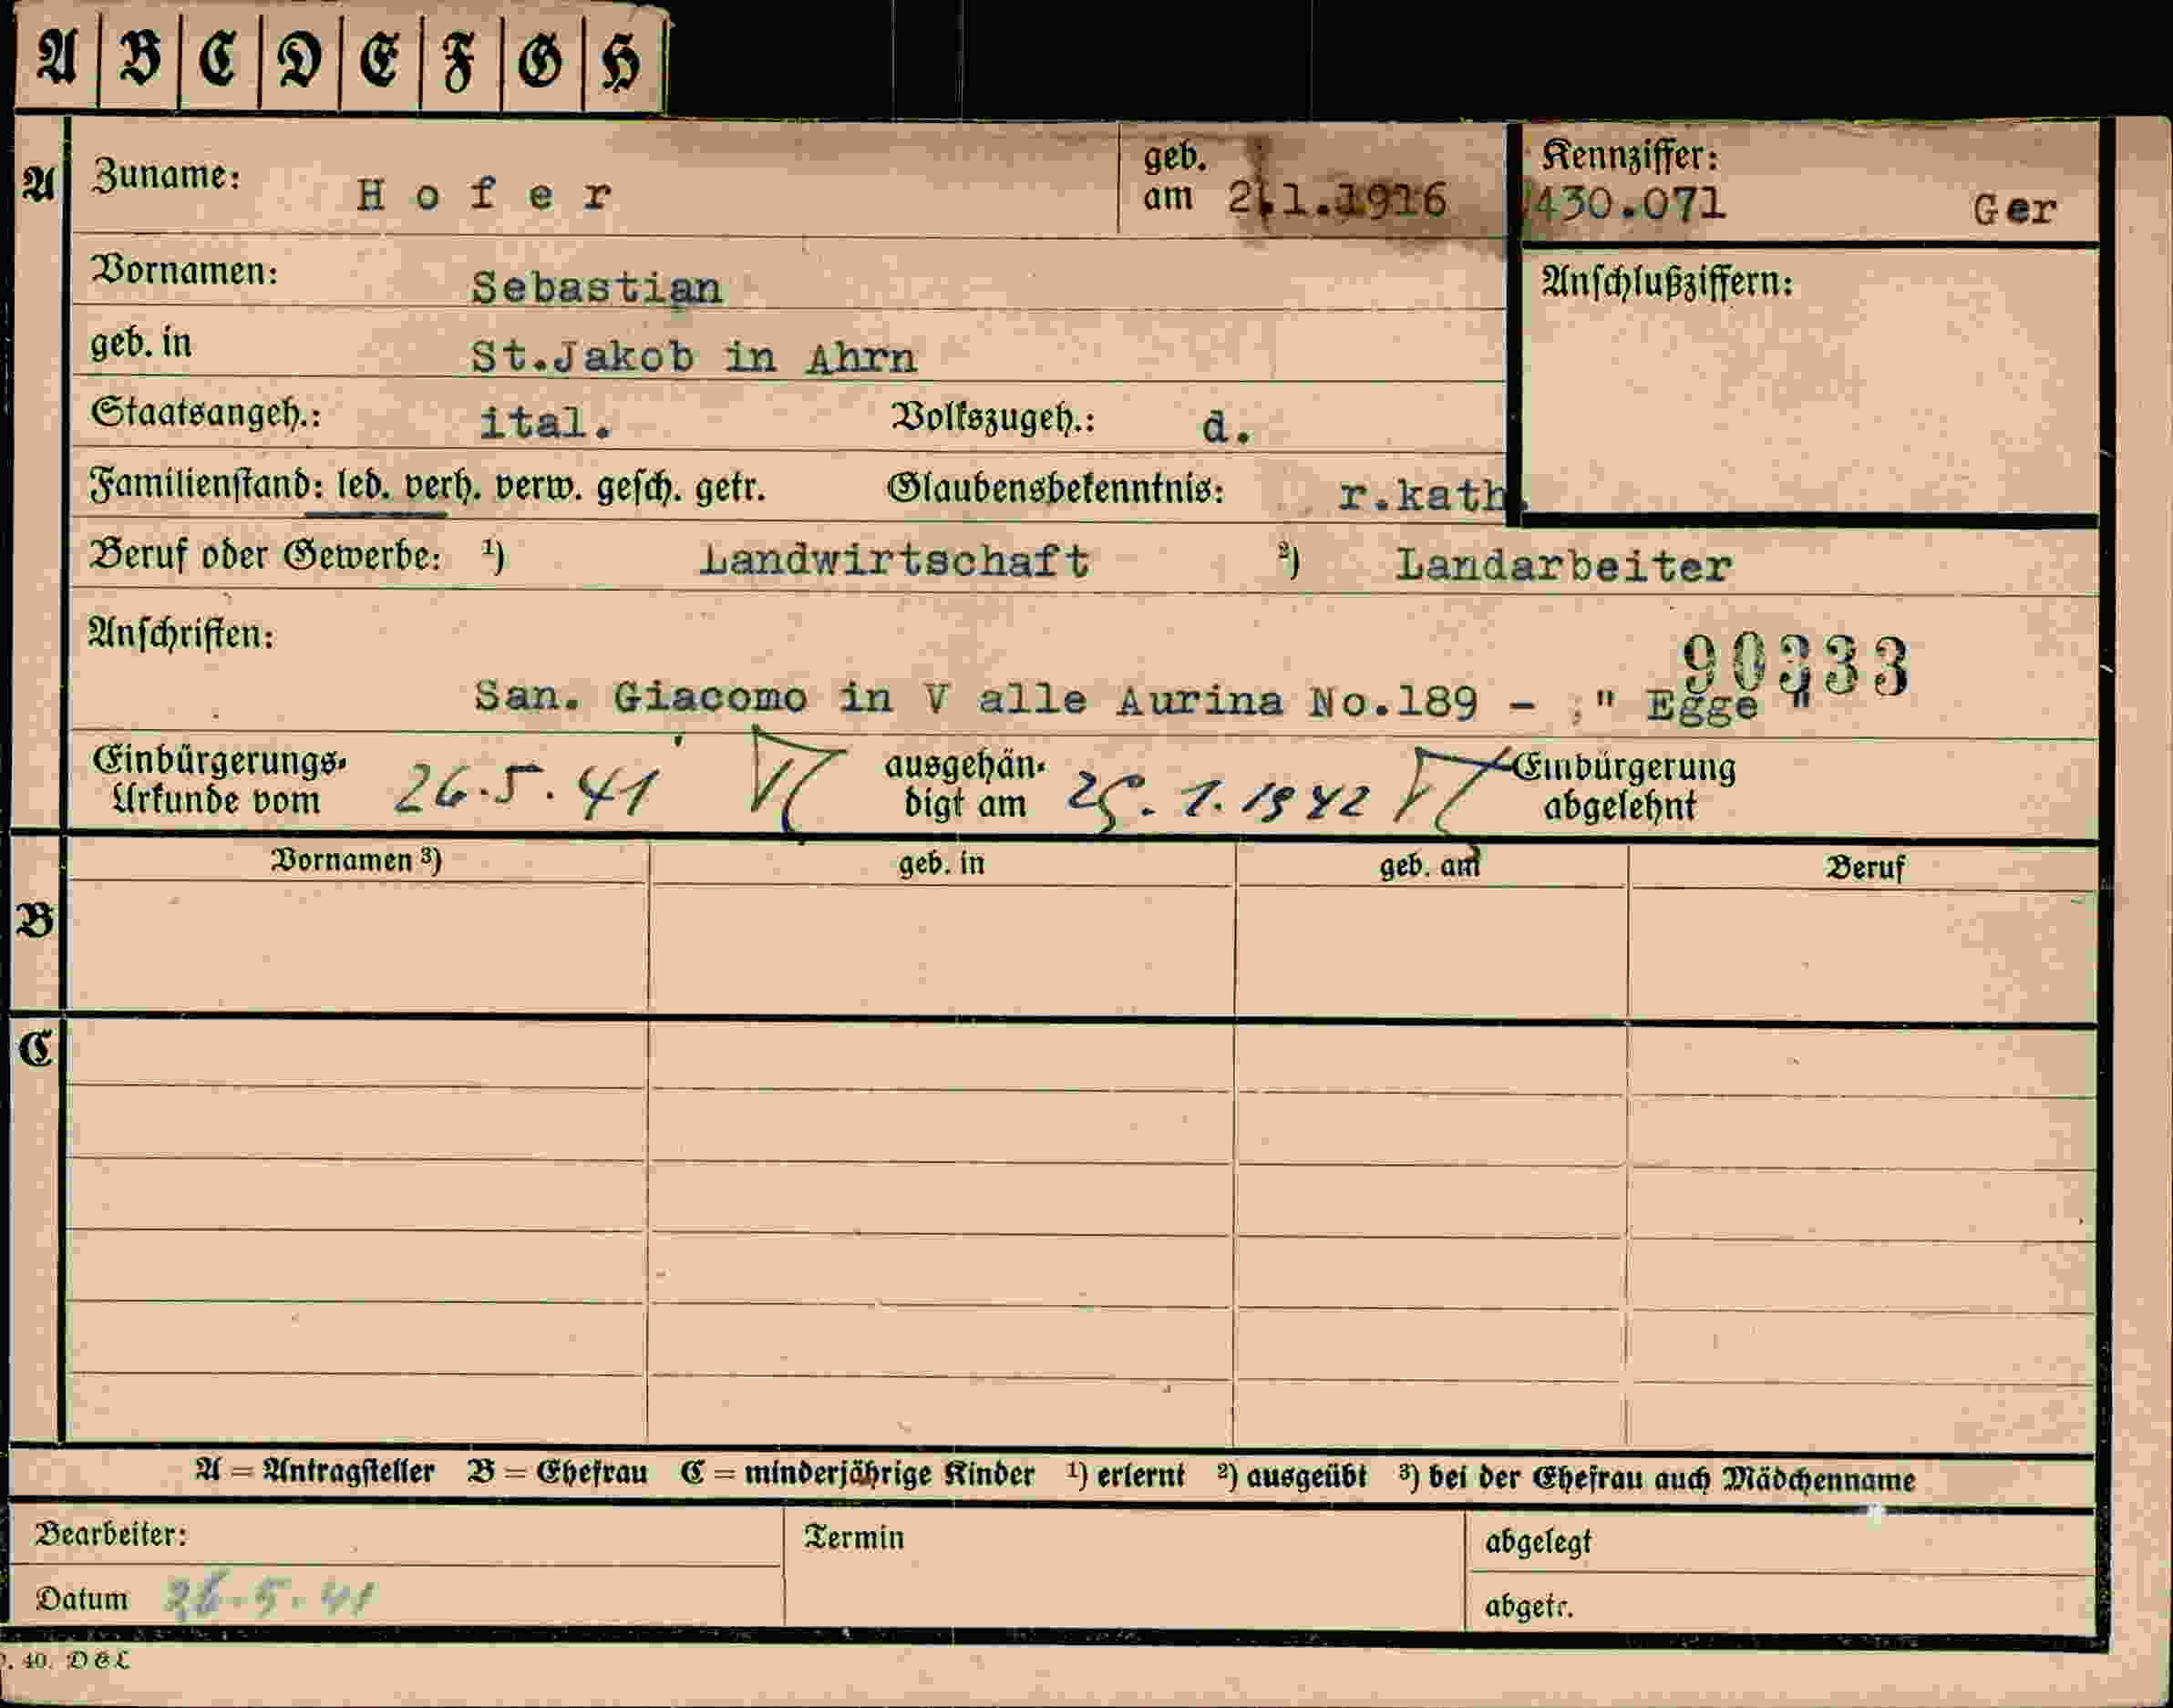 A B C D E F G H
A Zuname: Hofer geb. am 2.1.1916 Kennziffer: 430.071 Ger
Vornamen: Sebastian Anschlußziffern:
geb. in St.Jakob in Ahrn
Staatsangeh.: ital. Volkszugeh.: d.
Familienstand: led. verh. verw. gesch. getr. Glaubensbekenntnis: r.kath.
Beruf oder Gewerbe: 1) Landwirtschaft 2) Landarbeiter
Anschriften: 90333
San. Giacomo in V alle Aurina No.189 - ," Egge "
Einbürgerungs-Urkunde vom 26.5.41 ausgehändigt am 25.1.1942 Einbürgerung abgelehnt
Vornamen 3) geb. in geb. am Beruf
B
C
A = Antragsteller B = Ehefrau C = minderjährige Kinder 1) erlernt 2) ausgeübt 3) bei der Ehefrau auch Mädchenname
Bearbeiter: Termin abgelegt
Datum 26.5.41 abgetr.
. 40. D&L